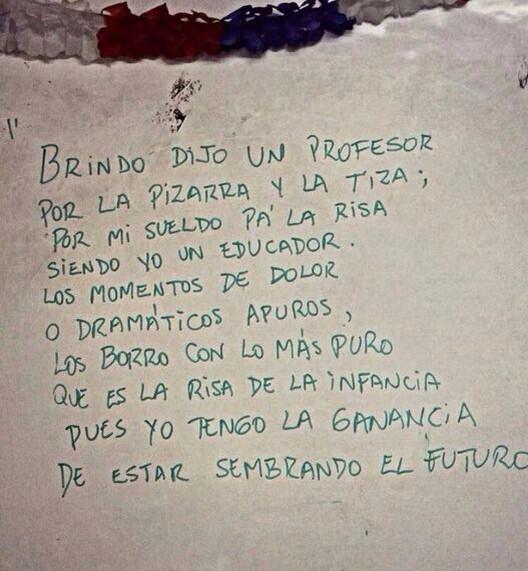 "BRINDO DIJO UN PROFESOR
POR LA PIZARRA Y LA TIZA;
POR MI SUELDO PA' LA RISA
SIENDO YO UN EDUCADOR.
LOS MOMENTOS DE DOLOR
O DRAMÁTICOS APUROS,
LOS BORRO CON LO MÁS PURO
QUE ES LA RISA DE LA INFANCIA
PUES YO TENGO LA GANANCIA
DE ESTAR SEMBRANDO EL FUTURO